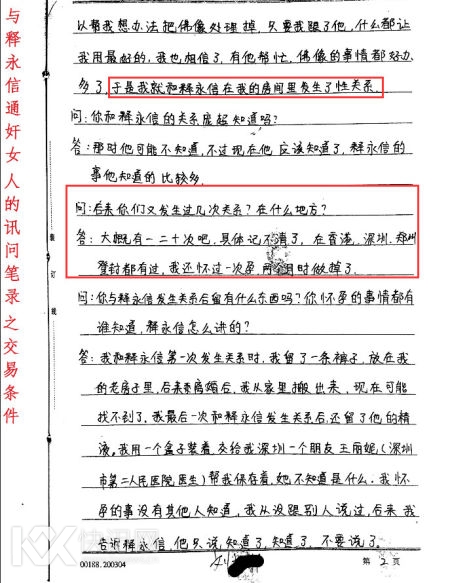 与释永信通奸女人的讯问笔录之交易条件
以帮我想办法把佛像处理掉,只要我跟了他,什么都让
我用最好的,我也相信了,有他帮忙,佛像的事情都好办
多了,于是我就和释永信在我的房间里发生了性关系.
问:你和释永信的关系庞超知道吗?
答:那时他可能不知道,不过现在他应该知道了,释永信的
事他知道的比较多.
问:后来你们又发生过几次关系?在什么地方?
答:大概有一二十次吧,具体记不清了,在香港、深圳、郑州
登封都有过,我还怀过一次孕,两个月时做掉了.
问:你与释永信发生关系后留有什么东西吗?你怀孕的事情都有
谁知道,释永信怎么讲的?
答:我和释永信第一次发生关系时,我留了一条裤子,放在我
的老房子里,后来离婚后,我从家里搬出来,现在可能
找不到了,我最后一次和释永信发生关系后,还留了他的精
液,我用一个盒子装着,交给我深圳一个朋友王丽妮,(深圳
市第二人民医院,医生)帮我保存着,她不知道是什么.我怀
孕的事没有其他人知道,我从没跟别人说过,后来我
告诉释永信,他只说,知道了,知道了,不要说了.
装订线
KX
00188.200304
第2页